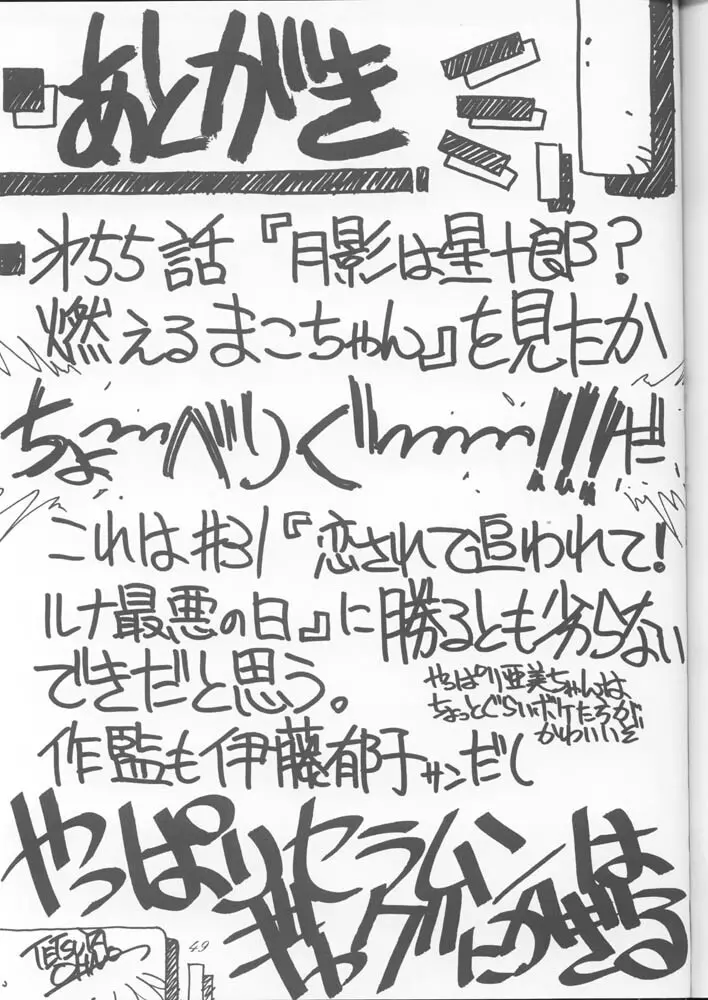 あとがき
第55話『月影は星十郎？
燃えるまこちゃん』を見たか
ちょ〜〜べりぐ〜〜〜!!!だ
これは#31『恋されて追われて!
ルナ最悪の日』に勝るとも劣らない
できだと思う。
やっぱり亜美ちゃんは
ちょっとぐらいボケたろが
かわいいぞ
作監も伊藤郁子サンだし
やっぱりセラムンは
ギャグにかぎる
49